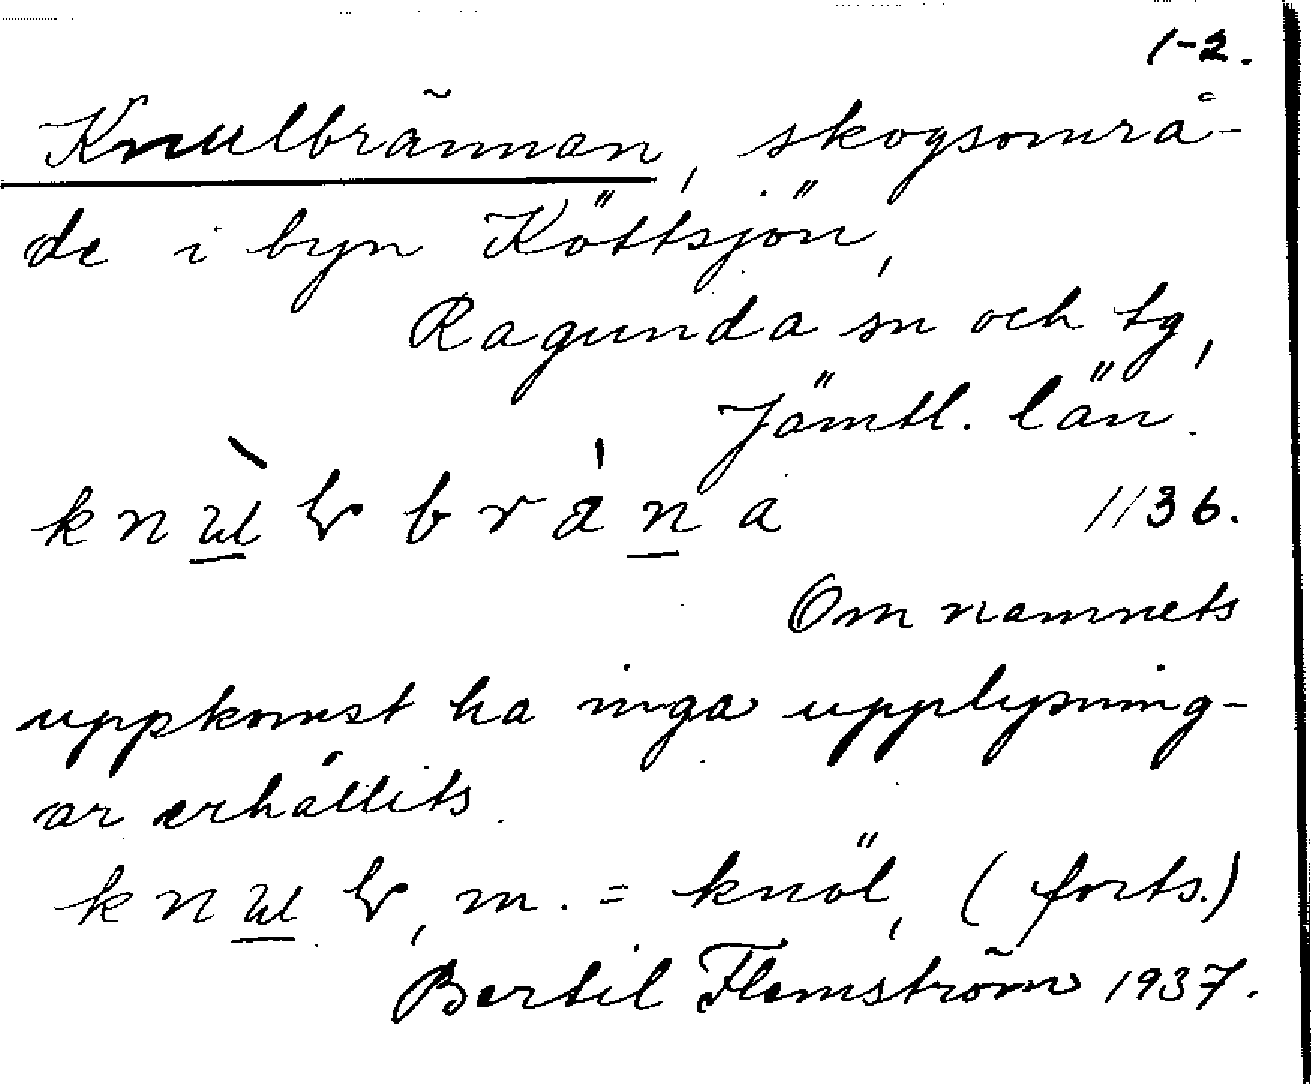 1-2.
Knulbrännan, skogsområ-
de i byn Köttsjön,
Ragunda sn och tg,
Jämtl. län.
1136.
Om namnets
uppkomst ha inga upplysning-
ar erhållits.
m. = knöl, (forts.)
Bertil Flemström 1937.